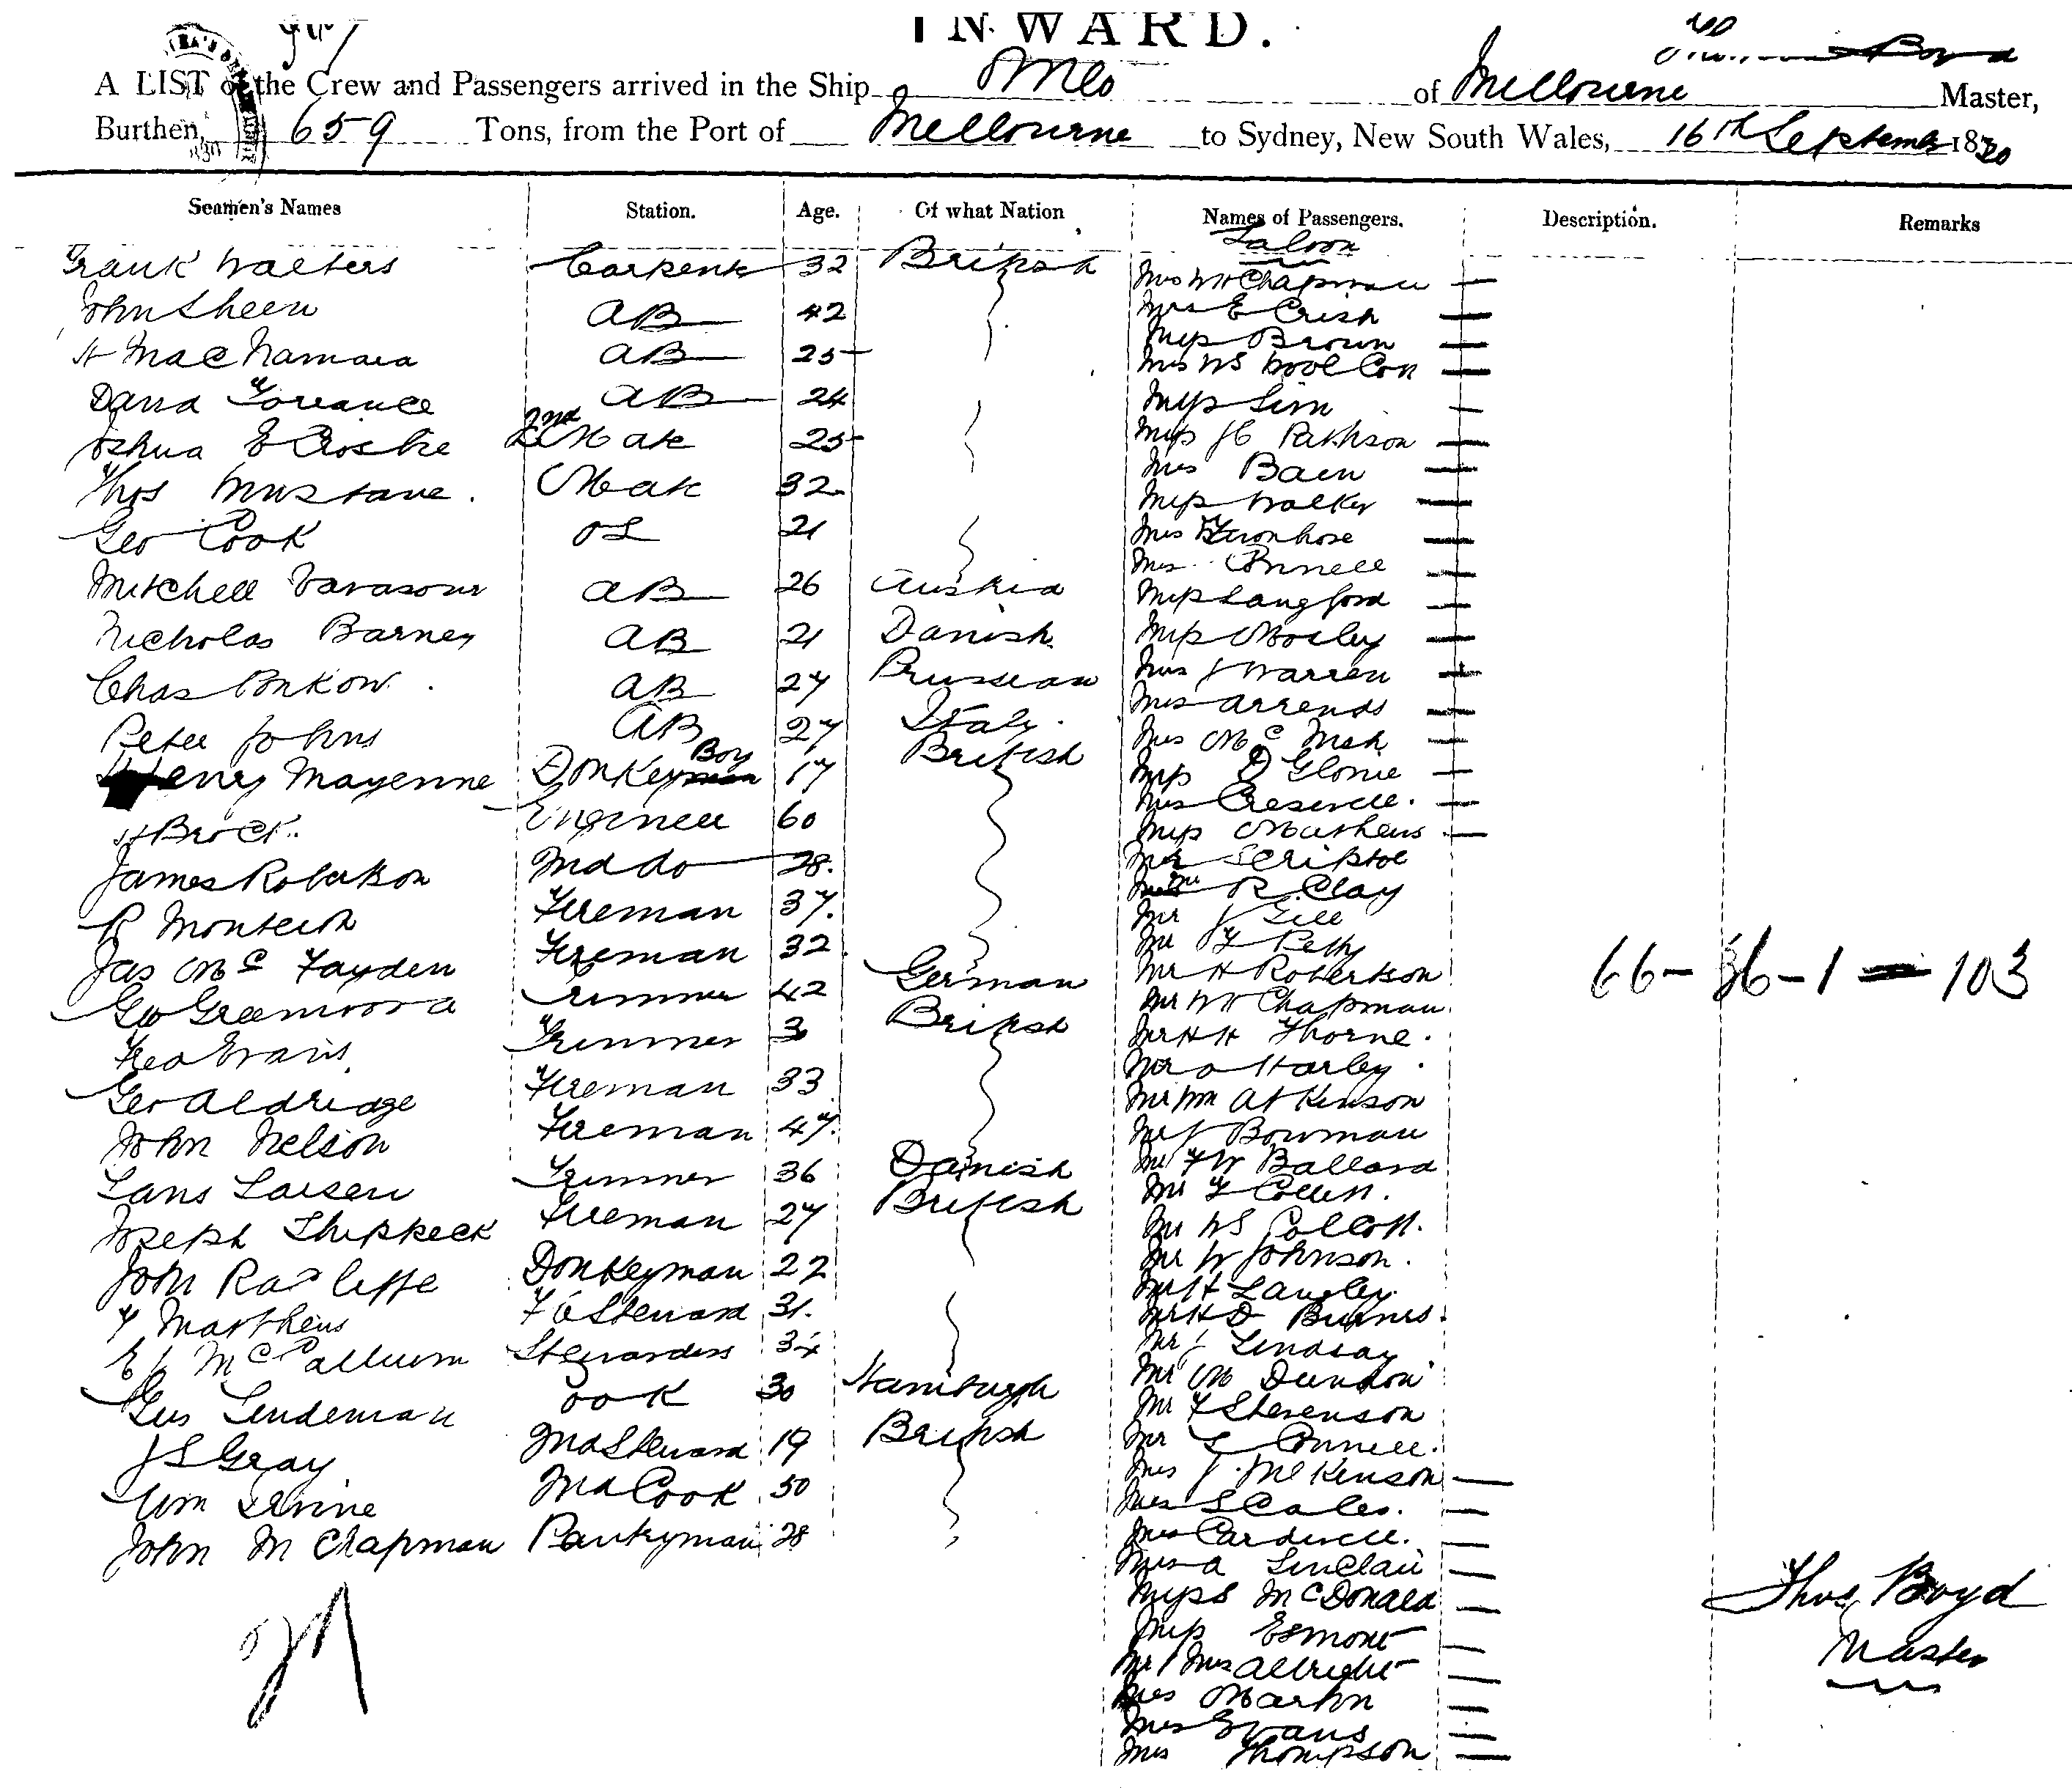 INWARD.
A LIST of the Crew and Passengers arrived in the Ship of Melbourne Master,
Burthen, 659 Tons, from the Port of Melbourne to Sydney, New South Wales, 16th September 1880
Seamen's Names Station. Age. Of what Nation Names of Passengers. Description. Remarks
Saloon
Frank Walters Carpenter 32 British
John Sheen AB 42
H MacNamara AB 25
David Torrance AB 24
Joshua E 2nd Mate 25
Thos Mate 32
Geo Cook OS 21
Mitchell Vavasour AB 26 Austria
Nicholas Barney AB 21 Danish
Chas AB 27 Prussian
Peter Johns AB 27 Italy
Henry Mayenne Donkey Boy 17 British
H Brock Engineer 60
James Robertson 2nd do 28.
R Monteith Fireman 37.
Jas Mc Fayden Fireman 32
Geo Greenwood Trimmer 42 German
Evans Trimmer 3 British
Geo Aldridge Fireman 33
John Nelson Fireman 47.
Lans Larsen Trimmer 36 Danish
Joseph Shippeck Fireman 27 British
John Ratcliffe Donkeyman 22
Matthews Steward 31.
E J McCallum Stewardess 34
Gus Lindeman Cook 30 Hamburgh
J S Gray 2nd Steward 19 British
Wm Irvine 2nd Cook 50
John M Chapman Pantryman 28
Mrs WH Chapman
Mrs E Crish
Miss Brown
Mrs WS Woolcott
Miss Sim
Miss JC Pattison
Mrs Bain
Miss Walker
Mrs
Mrs Connell
Miss Langford
Miss Mosley
Mrs J Warren
Mrs Arrends
Mrs Mc
Miss D Glorie
Mrs Creswell.
Miss Mathews
Mr
R Clay
Mr J Gill
Mr T Petty
Mr H Robertson
Mr WH Chapman
Mr HH Thorne.
Mr O Harley
Mr Wm Atkinson
Mr J Bowman
Mr FW Ballard
Mr F
Mr WS
Mr W Johnson.
Mr H Langley
Mr HD
Mr J Lindsay
Mr M
Mr F Stevenson
Mr S Connell.
Mrs J McKinson
Mrs Scales.
Mrs Cardwell.
Mrs A Sinclair
Miss S McDonald
Miss Esmont
Mr & Mrs Allright
Mrs Martin
Mrs Evans
Mrs Thompson
66 - 36 - 1 = 103
Thos Boyd
Master